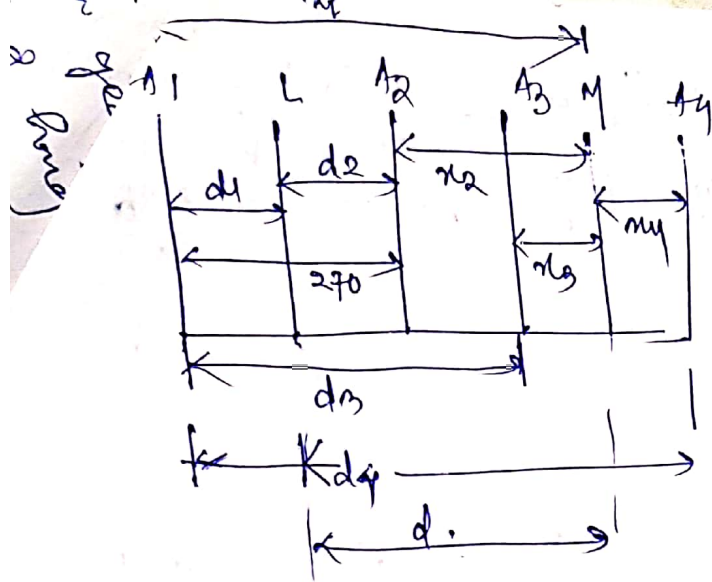 A1 L A2 A3 M A4
d1 d2 x2
x4
270 x3
d3
d4
d.